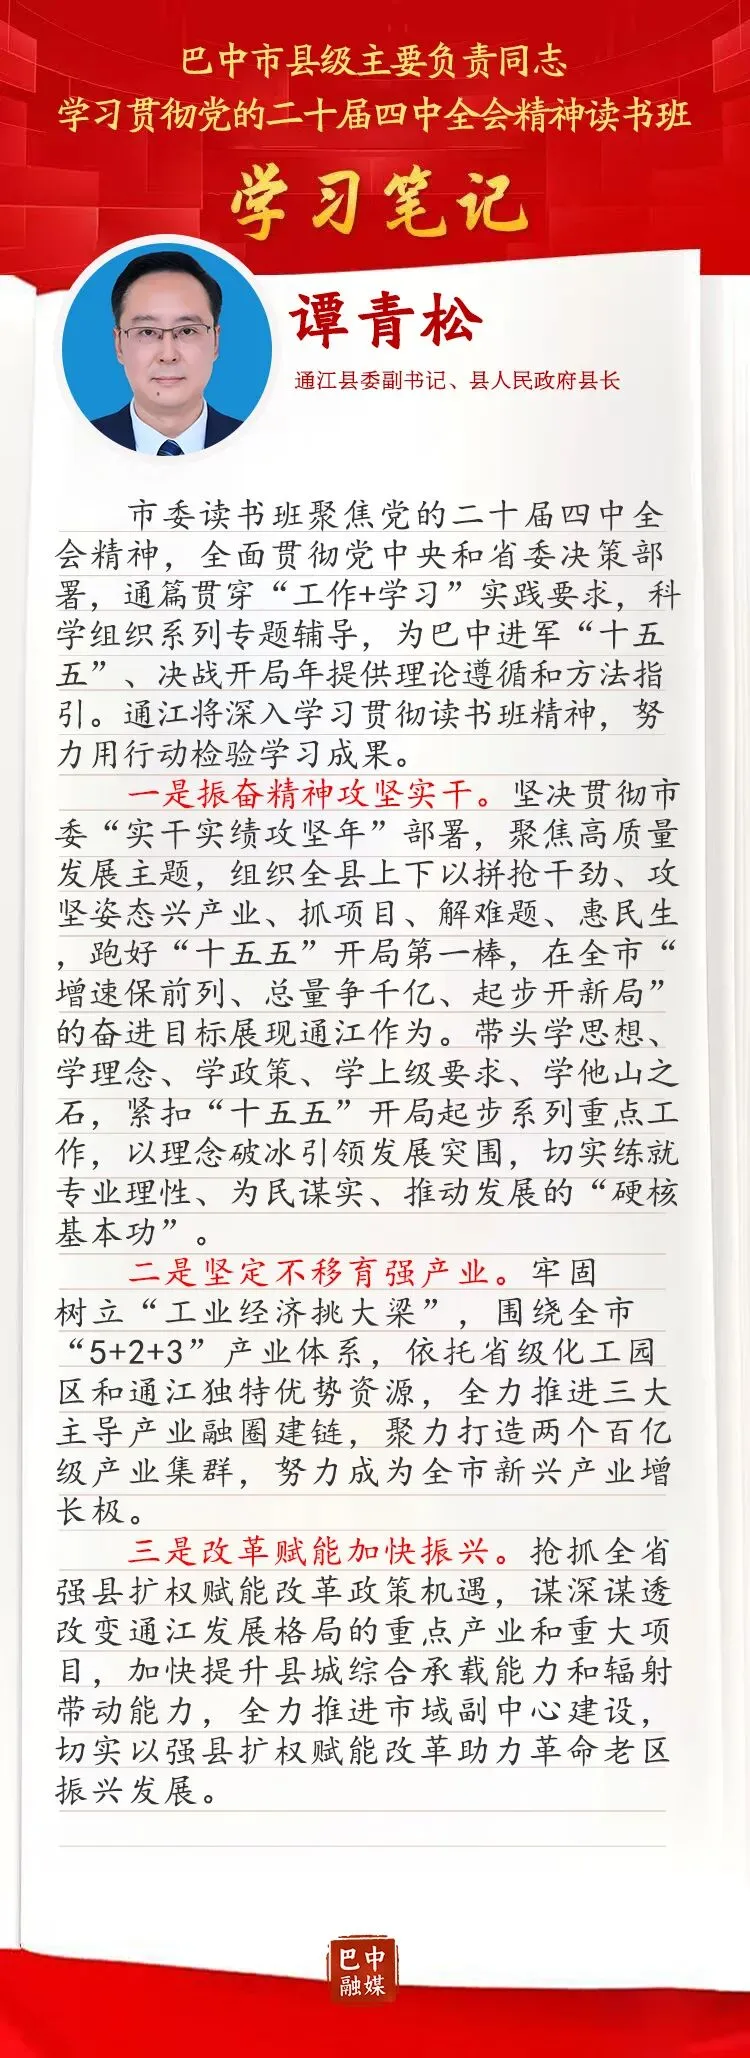 巴中市县级主要负责同志
学习贯彻党的二十届四中全会精神读书班
学习笔记
谭青松
通江县委副书记、县人民政府县长
市委读书班聚焦党的二十届四中全
会精神，全面贯彻党中央和省委决策部
署，通篇贯穿“工作+学习”实践要求，科
学组织系列专题辅导，为巴中进军“十五
五”、决战开局年提供理论遵循和方法指
引。通江将深入学习贯彻读书班精神，努
力用行动检验学习成果。
一是振奋精神攻坚实干。坚决贯彻市
委“实干实绩攻坚年”部署，聚焦高质量
发展主题，组织全县上下以拼抢干劲、攻
坚姿态兴产业、抓项目、解难题、惠民生
，跑好“十五五”开局第一棒，在全市“
增速保前列、总量争千亿、起步开新局”
的奋进目标展现通江作为。带头学思想、
学理念、学政策、学上级要求、学他山之
石，紧扣“十五五”开局起步系列重点工
作，以理念破冰引领发展突围，切实练就
专业理性、为民谋实、推动发展的“硬核
基本功”。
二是坚定不移育强产业。牢固
树立“工业经济挑大梁”，围绕全市
“5+2+3”产业体系，依托省级化工园
区和通江独特优势资源，全力推进三大
主导产业融圈建链，聚力打造两个百亿
级产业集群，努力成为全市新兴产业增
长极。
三是改革赋能加快振兴。抢抓全省
强县扩权赋能改革政策机遇，谋深谋透
改变通江发展格局的重点产业和重大项
目，加快提升县城综合承载能力和辐射
带动能力，全力推进市域副中心建设，
切实以强县扩权赋能改革助力革命老区
振兴发展。
巴中
融媒